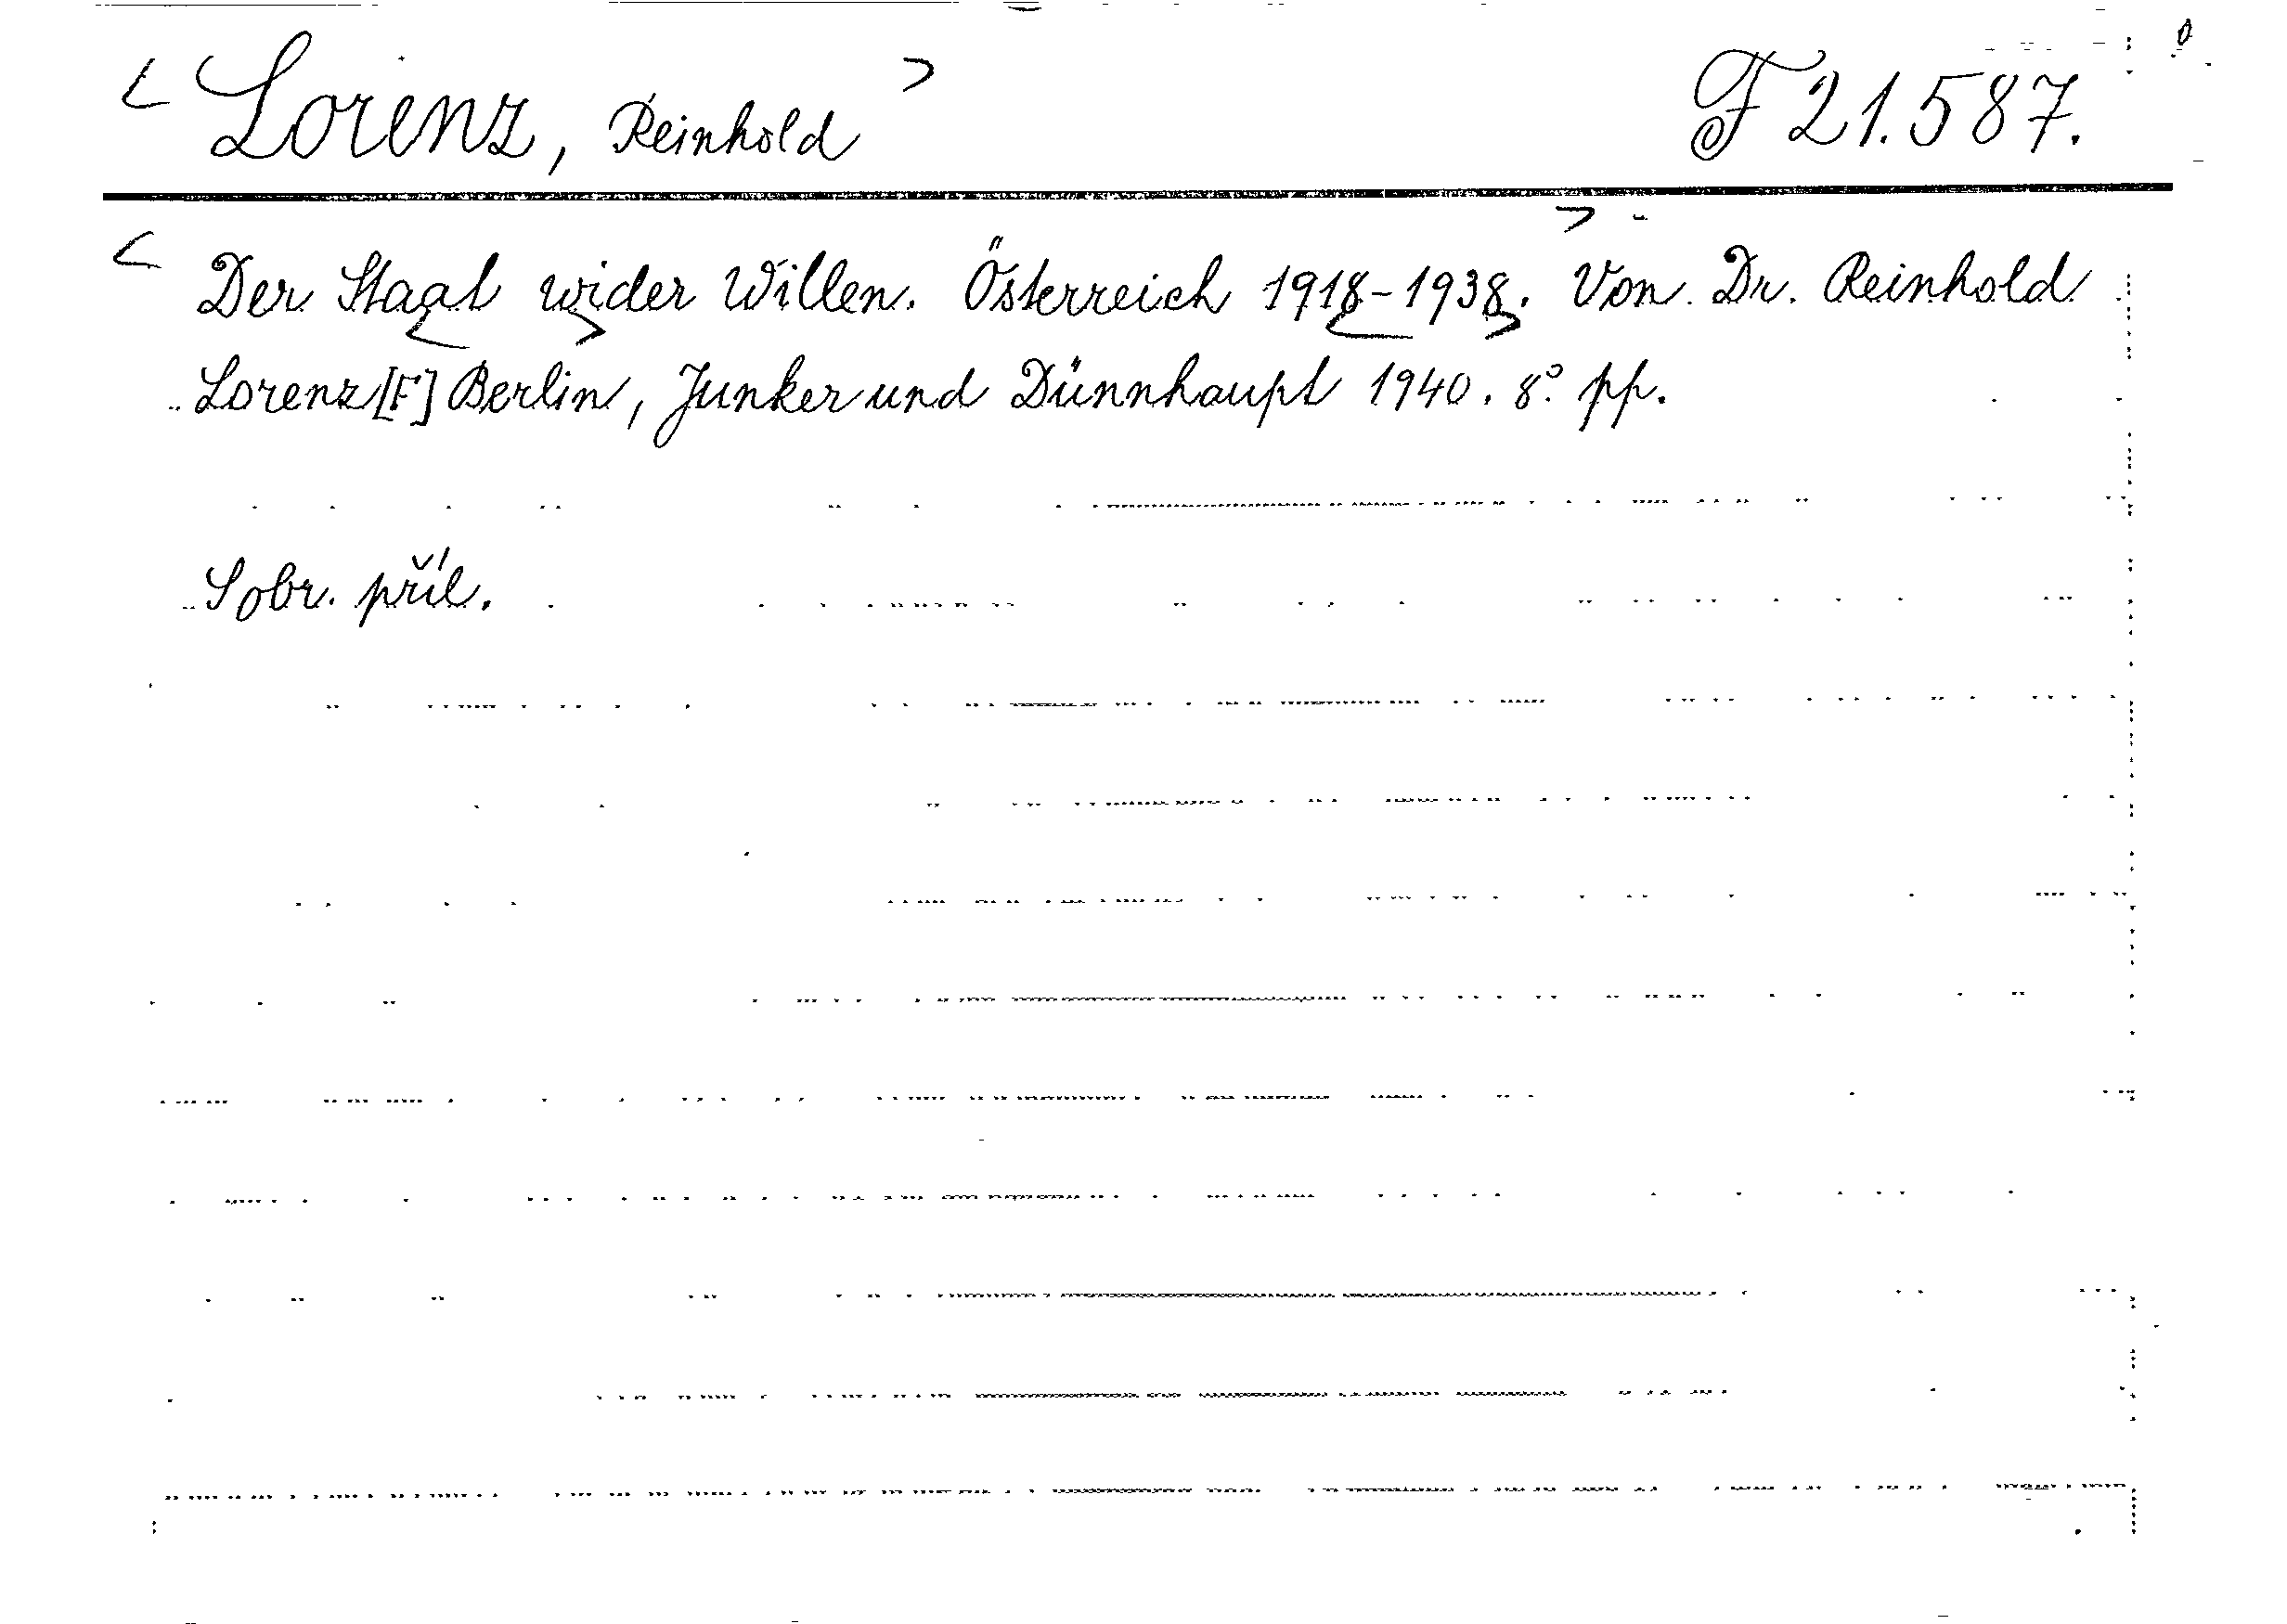 < Lorenz, Reinhold > F 21.587.
< Der Staat wider Willen. Österreich 1918-1938. > Von Dr. Reinhold
Lorenz [F] Berlin, Junker und Dünnhaupt 1940. 8° pp.
S obr. příl.